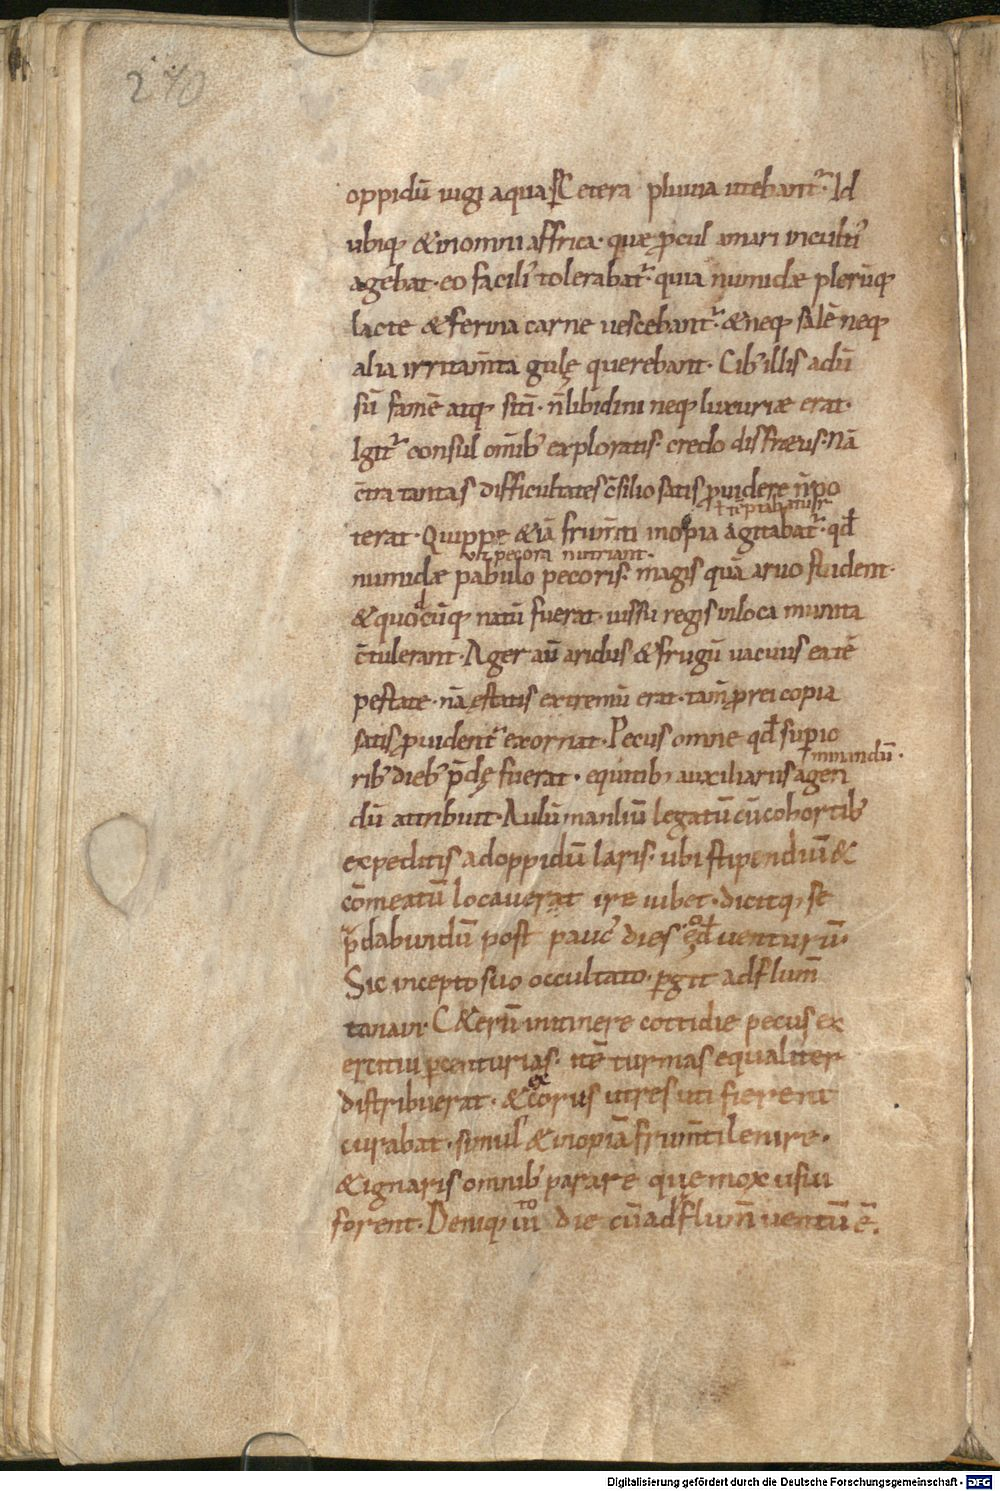 270
oppidū iugi aqua Cetera pluuia utebant᷑. Id
ubiq; & in omni affrica. quæ p̱cul amari incultꝰ
agebat. eo faciliꝰ tolerabat᷑. quia numidæ plerūq;
lacte & ferina carne uescebant᷑. & neq; salē neq;
alia irritam̄ta gulę querebant. Cibꝰ illis aduꝰ
sū famē atq; sitī. n̄ libidini neq; luxuriæ erat.
Igit᷑ consul om̄ib; exploratis. credo dis fræus. Nā
c̄tra tantas difficultates c̄silio satis p̱uidere n̄ po
ł tēptabat᷑
terat. Quippe & iā frum̄ti inopia agitabat᷑. qđ
ut pecora nutriant.
numidæ pabulo pecoris. magis quā aruo student.
& quodcūq; natū fuerat. iussu regis in loca munita
c̄tulerant. Ager aū aridus & frugū uacuus ea tē
pestate. nā ęstatis extremū erat. tam̄ p̱ rei copia
satis p̱uident᷑ exornat. Pecus omne qđ supio
ł minandū.
rib; dieb; p̄dę fuerat. equitib; auxiliariis agen
dū attribuit. Aulū manliū legatū cū cohortib;
expeditis ad oppidū laris. ubi stipendiū &
cōmeatū locauerat ire iubet. dicitq; se
p̄dabundū post paucꝰ dies eođ uenturū.
Sic incepto suo occultato. pgit ad flum̄
tanain. C&erū in itinere cottidie pecus ex
ercitui p centurias. itē turmas equaliter
distribuerat. & ex corus utres uti fierent
curabat. simul & inopiā frum̄ti lenire.
& ignaris omnib; parare que mox usui
forent. Deniq; ui to die cū ad flum̄ uentū ē.
Digitalisierung gefördert durch die Deutsche Forschungsgemeinschaft - DFG